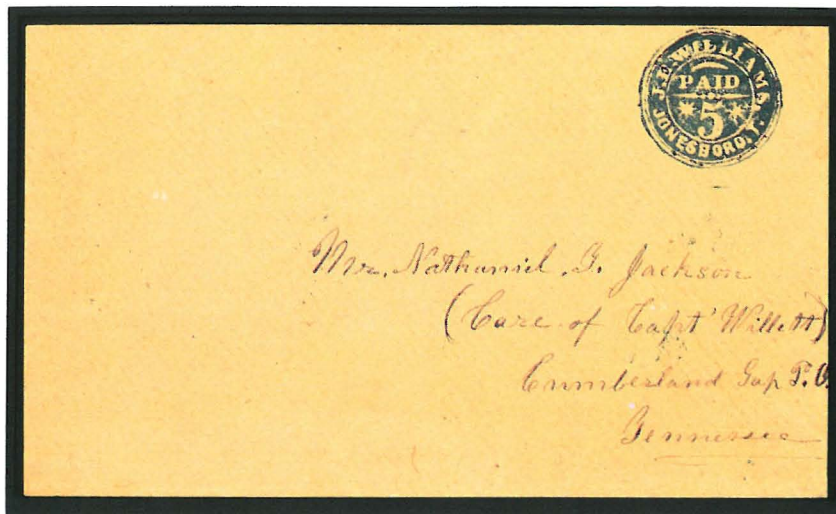 J. D. WILLIAMS
PAID
5
JONESBORO, T.
Mr. Nathaniel G. Jackson
(Care of Capt' Willett)
Cumberland Gap P. O.
Tennessee